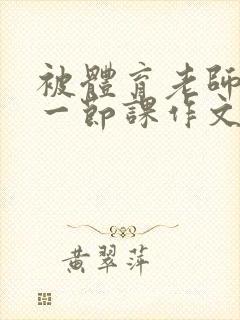 被體育老師
一節課作文
黄翠萍